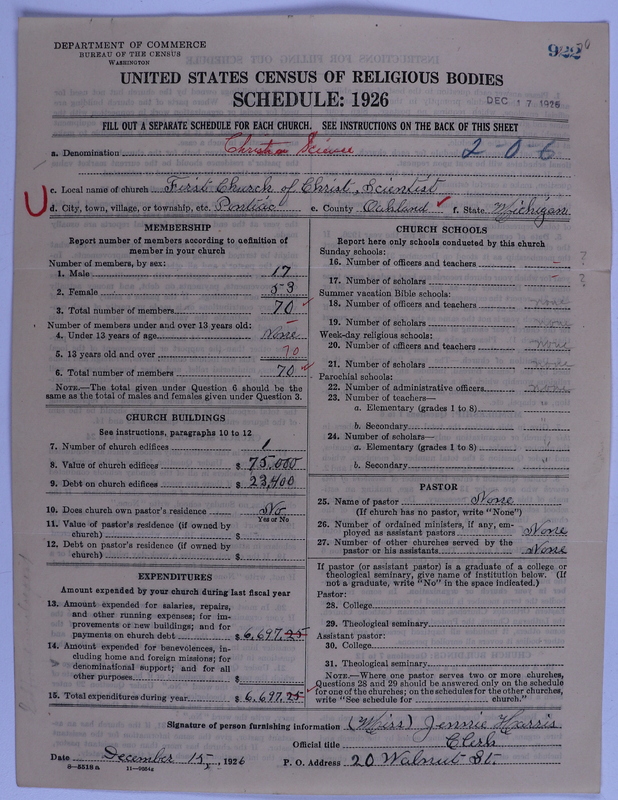 DEPARTMENT OF COMMERCE
BUREAU OF THE CENSUS
WASHINGTON
922
UNITED STATES CENSUS OF RELIGIOUS BODIES
SCHEDULE: 1926
DEC 17 1926
FILL OUT A SEPARATE SCHEDULE FOR EACH CHURCH. SEE INSTRUCTIONS ON THE BACK OF THIS SHEET
a. Denomination Christian Science 2-0-6
c. Local name of church First Church of Christ, Scientist
d. City, town, village, or township, etc. Pontiac e. County Oakland ✓ f. State Michigan
MEMBERSHIP
Report number of members according to definition of
member in your church
Number of members, by sex:
1. Male 17
2. Female 53
3. Total number of members 70
Number of members under and over 13 years old:
4. Under 13 years of age None
5. 13 years old and over 70
6. Total number of members 70
NOTE.—The total given under Question 6 should be the
same as the total of males and females given under Question 3.
CHURCH BUILDINGS
See instructions, paragraphs 10 to 12
7. Number of church edifices 1
8. Value of church edifices $ 75,000
9. Debt on church edifices $ 23,400
10. Does church own pastor's residence No
Yes or No
11. Value of pastor's residence (if owned by
church) $
12. Debt on pastor's residence (if owned by
church) $
EXPENDITURES
Amount expended by your church during last fiscal year
13. Amount expended for salaries, repairs,
and other running expenses; for im-
provements or new buildings; and for
payments on church debt $ 6,697.25
14. Amount expended for benevolences, in-
cluding home and foreign missions; for
denominational support; and for all
other purposes $
15. Total expenditures during year $ 6,697.25
CHURCH SCHOOLS
Report here only schools conducted by this church
Sunday schools:
16. Number of officers and teachers – ?
17. Number of scholars – ?
Summer vacation Bible schools:
18. Number of officers and teachers none
19. Number of scholars none
Week-day religious schools:
20. Number of officers and teachers none
21. Number of scholars none
Parochial schools:
22. Number of administrative officers none
23. Number of teachers—
a. Elementary (grades 1 to 8) "
b. Secondary "
24. Number of scholars—
a. Elementary (grades 1 to 8) "
b. Secondary "
PASTOR
25. Name of pastor None
(If church has no pastor, write "None")
26. Number of ordained ministers, if any, em-
ployed as assistant pastors None
27. Number of other churches served by the
pastor or his assistants None
If pastor (or assistant pastor) is a graduate of a college or
theological seminary, give name of institution below. (If
not a graduate, write "No" in the space indicated.)
Pastor:
28. College
29. Theological seminary
Assistant pastor:
30. College
31. Theological seminary
NOTE.—Where one pastor serves two or more churches,
Questions 28 and 29 should be answered only on the schedule
for one of the churches; on the schedules for the other churches,
write "See schedule for church."
Signature of person furnishing information (Miss) Jennie Harris
Official title Clerk
Date December 15, 1926 P. O. Address 20 Walnut St.
8—5518a 11—9064